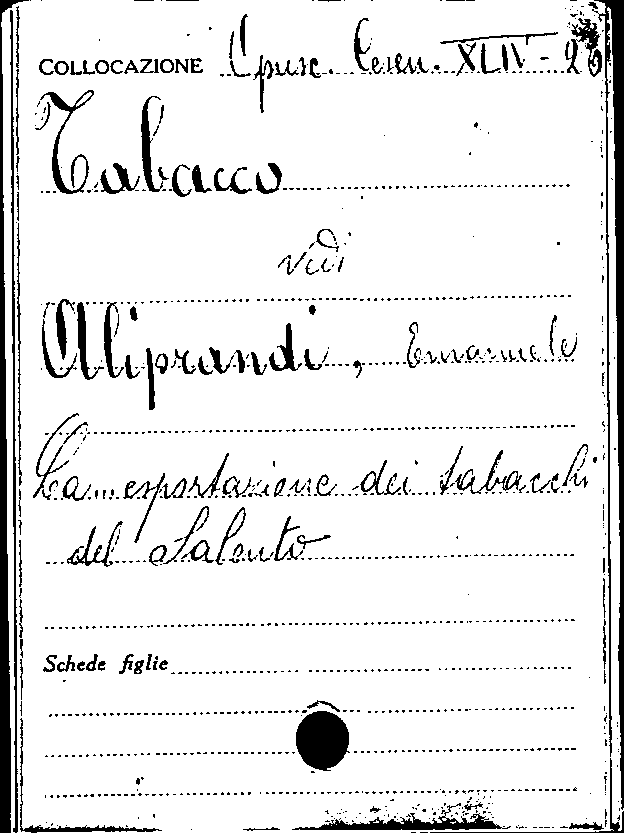 COLLOCAZIONE Opusc. Cesen. XLIV - 26
Tabacco
vedi
Aliprandi, Emanuele
La esportazione dei tabacchi
del Salento
Schede figlie